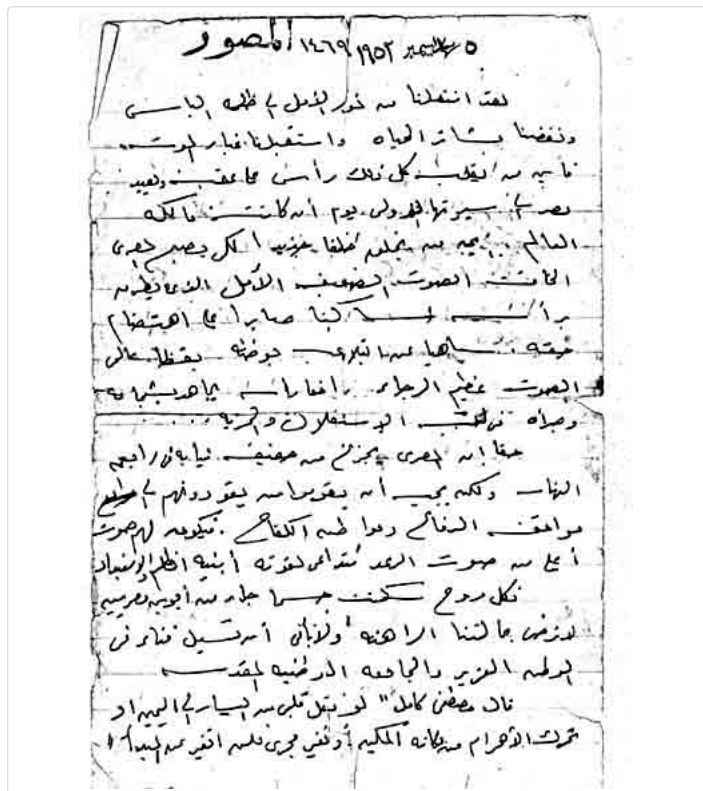 ٥ ديسمبر ١٩٥٢ ١٤٦٩ المصور
لقد انتقلنا من نور الأمل إلى ظلمة اليأس
ونفضنا بشائر الحياة واستقبلنا غبار الموت
فأين من يقلب كل ذلك رأسا على عقب ويعيد
مصر إلى سيرتها الأولى يوم أن كانت مالكة
العالم. أين من يخلق خلقا جديدا لكى يصبح المصرى
الخافت الصوت الضعيف الأمل الذى يطرق
برأسه ساكنا صابرا على اهتضام
حقه ساهيا عن التلاعب يقظا عالى
الصوت عظيم الرجاء رافعا رأسه يجاهد بشجاعة
وجرأة فى طلب الاستقلال والحرية
حقا إن المصرى يجزع من حفيف ثيابه فى رابعة
النهار ولكن يجب أن يقوم من يقودونهم إلى
مواقف الدفاع ومواطن الكفاح. فيكون لهم صوت
أعلى من صوت الرعد تتداعى لقوته أبنية الظلم والاستبداد
فكل روح سكنت جسما جاء من أبوين مصريين
لا ترضى حالتنا الراهنة ولا تأبى أن تسيل فناء فى
الوطن العزيز والجامعة الوطنية المقدسة
قال مصطفى كامل "لو نقل قلبى من اليسار إلى اليمين أو
تحركت الأهرام من مكانها المكين أو تغير مجرى فلن أتغير عن المبدأ"